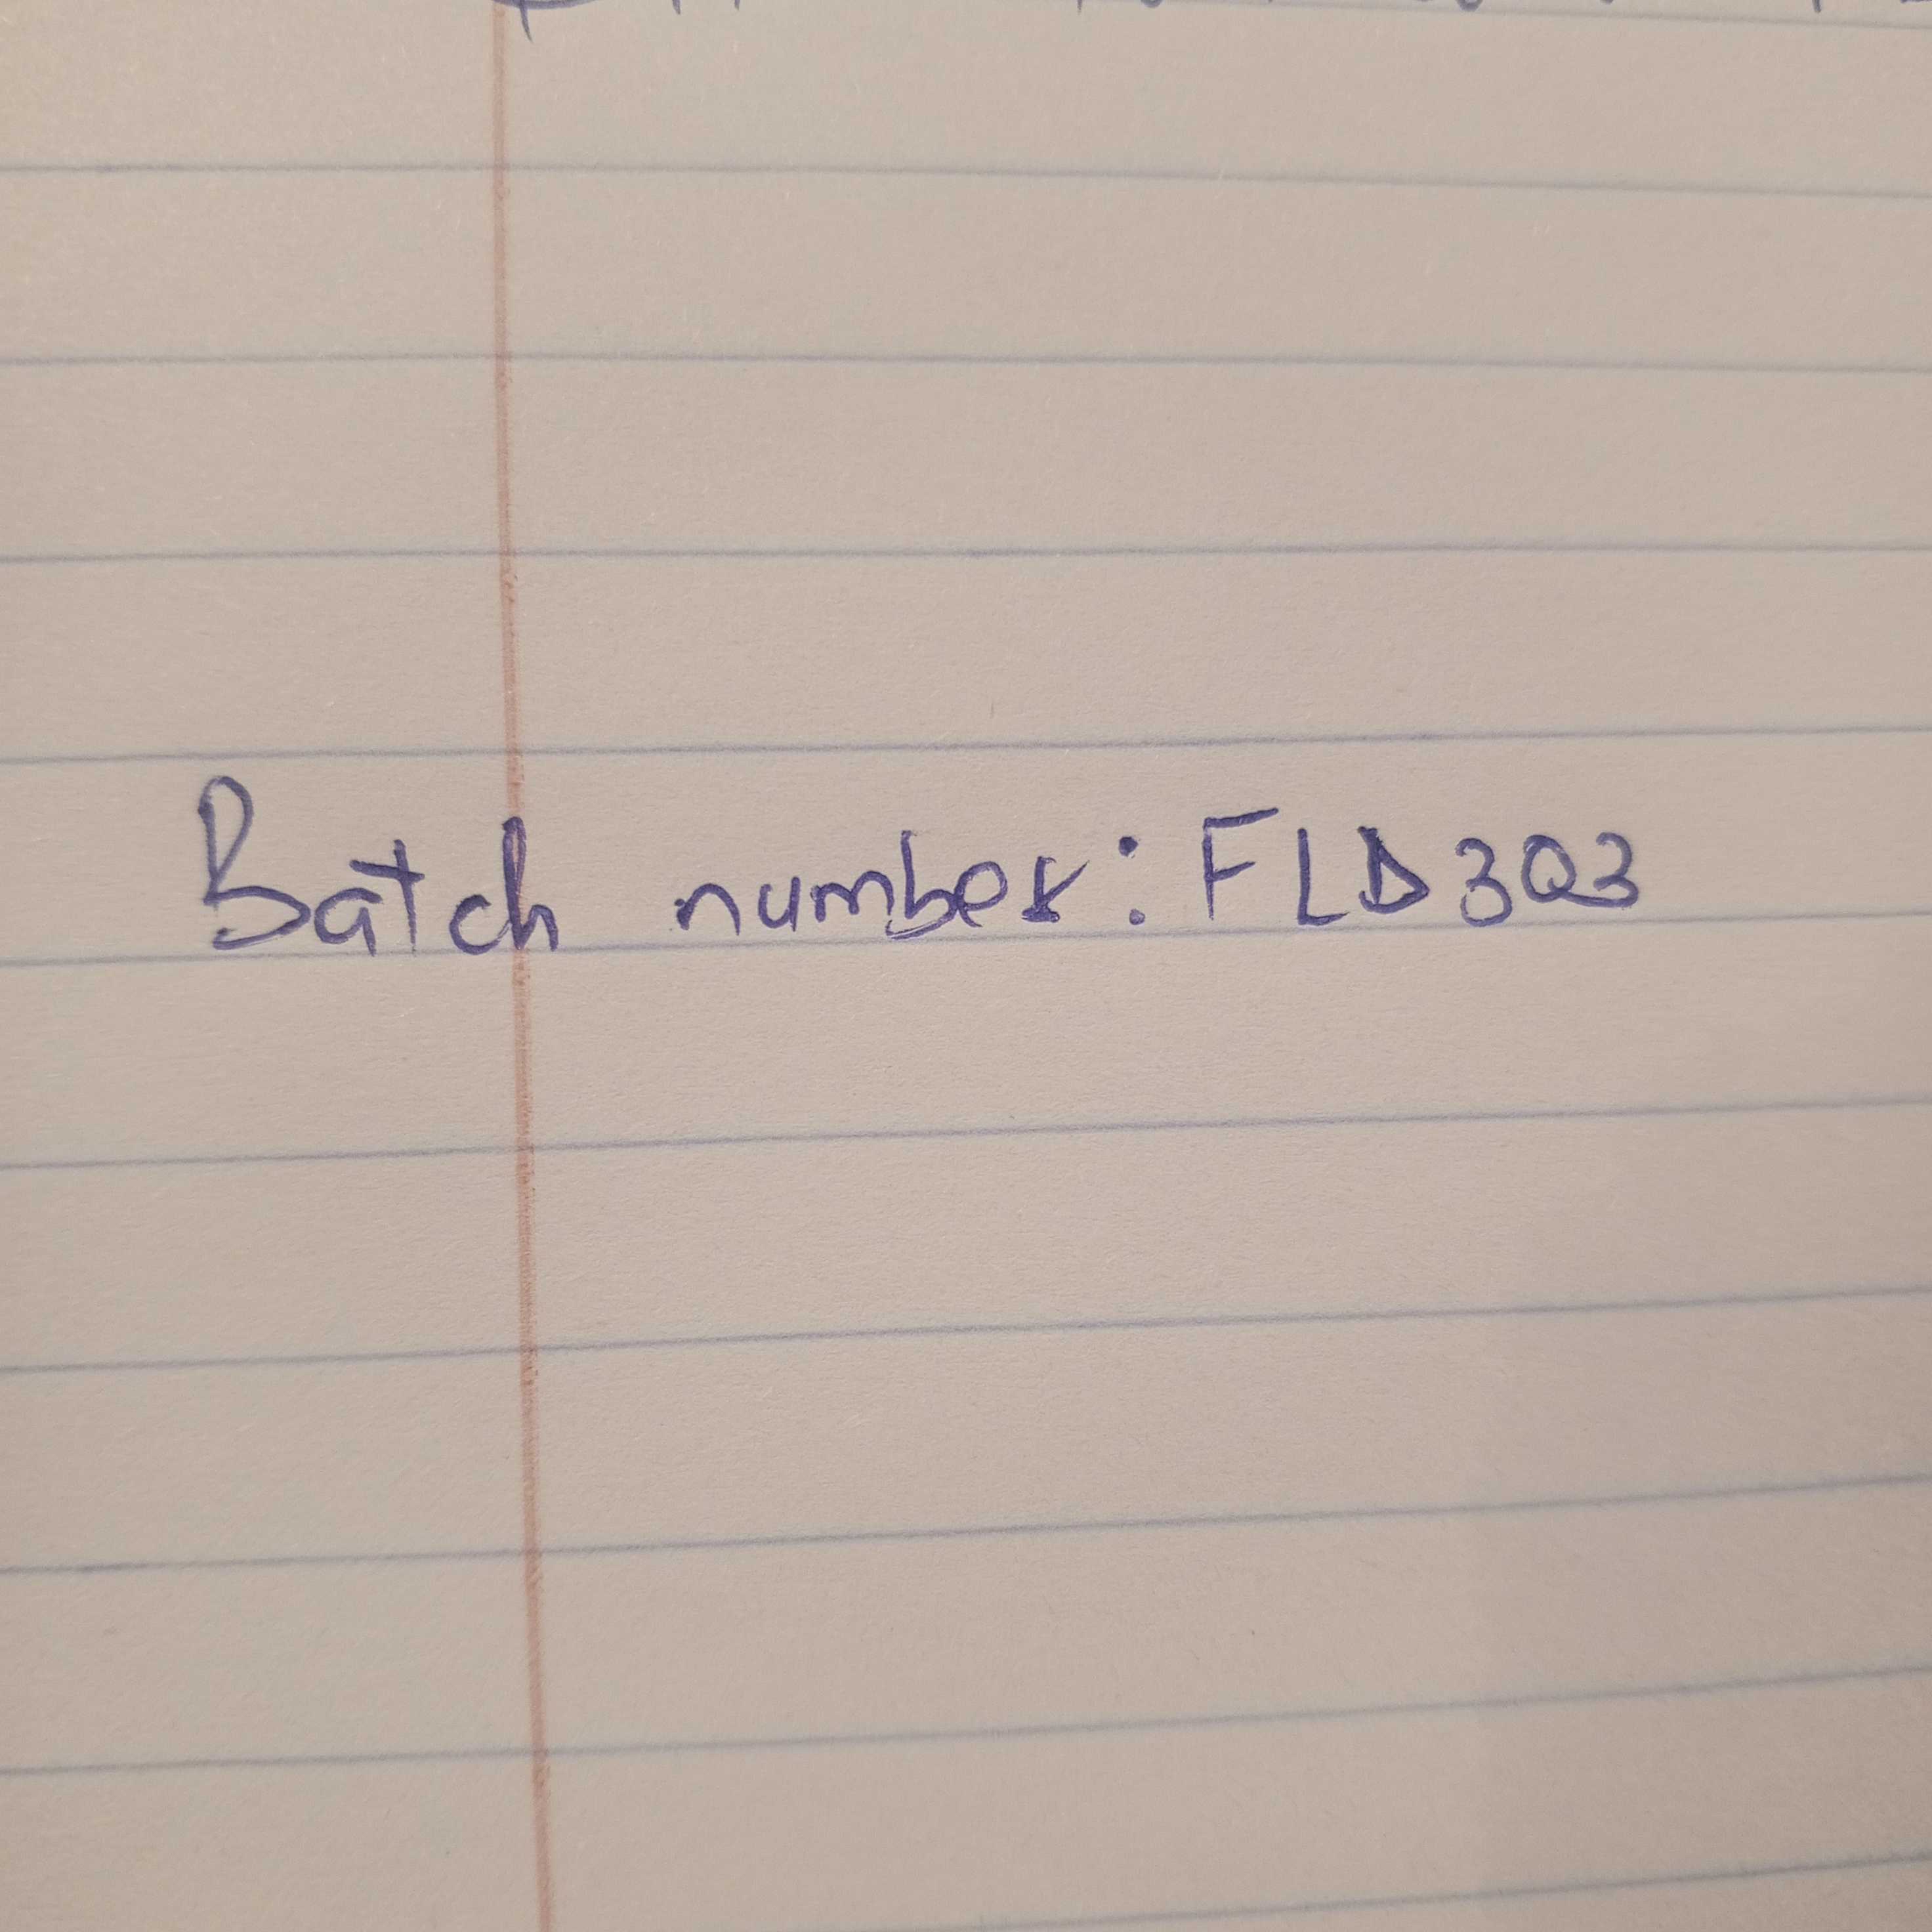 Batch number: FLD3Q3